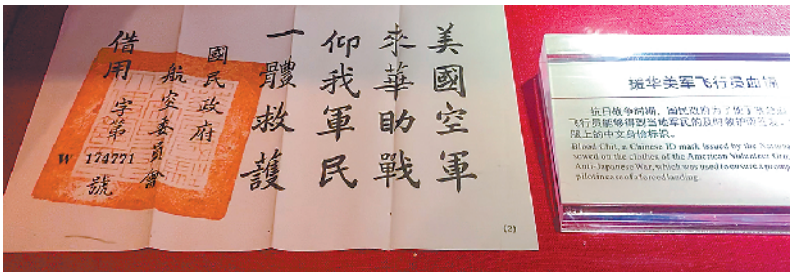 美國空軍
來華助戰
仰我軍民
一體救護
國民政府
航空委員會
借用 字第
W 174771
號
(2)
援华美军飞行员血
抗日战争时期，国民政府为了便于
飞行员能够得到当地军民的及时救护
服上的中文身份标识。
Blood Chit, a Chinese ID mark issued by the Nationa
sewed on the clothes of the American Volunteer Grou
Anti-Japanese War, which was used to ensure a promp
pilot in case of a forced landing.